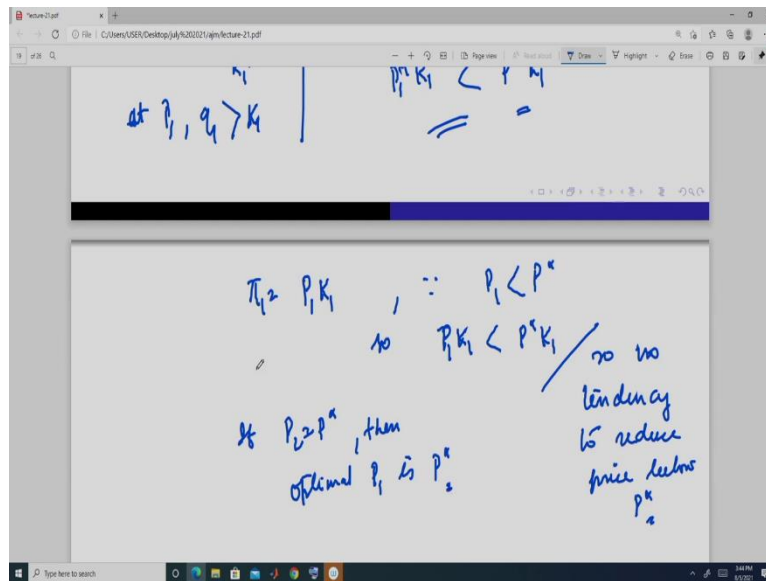 lecture-21.pdf
File | C:/Users/USER/Desktop/july%202021/ajm/lecture-21.pdf
19 of 28
Page view | Read aloud | Draw | Highlight | Erase
at P₁, q₁ > K₁
π₁ = P₁K₁ , ∵ P₁ < P*
so P₁K₁ < P*K₁
so no
tendency
to reduce
price below
P*
If P₂ = P*, then
optimal P₁ is P*
Type here to search
3:44 PM
8/5/2021